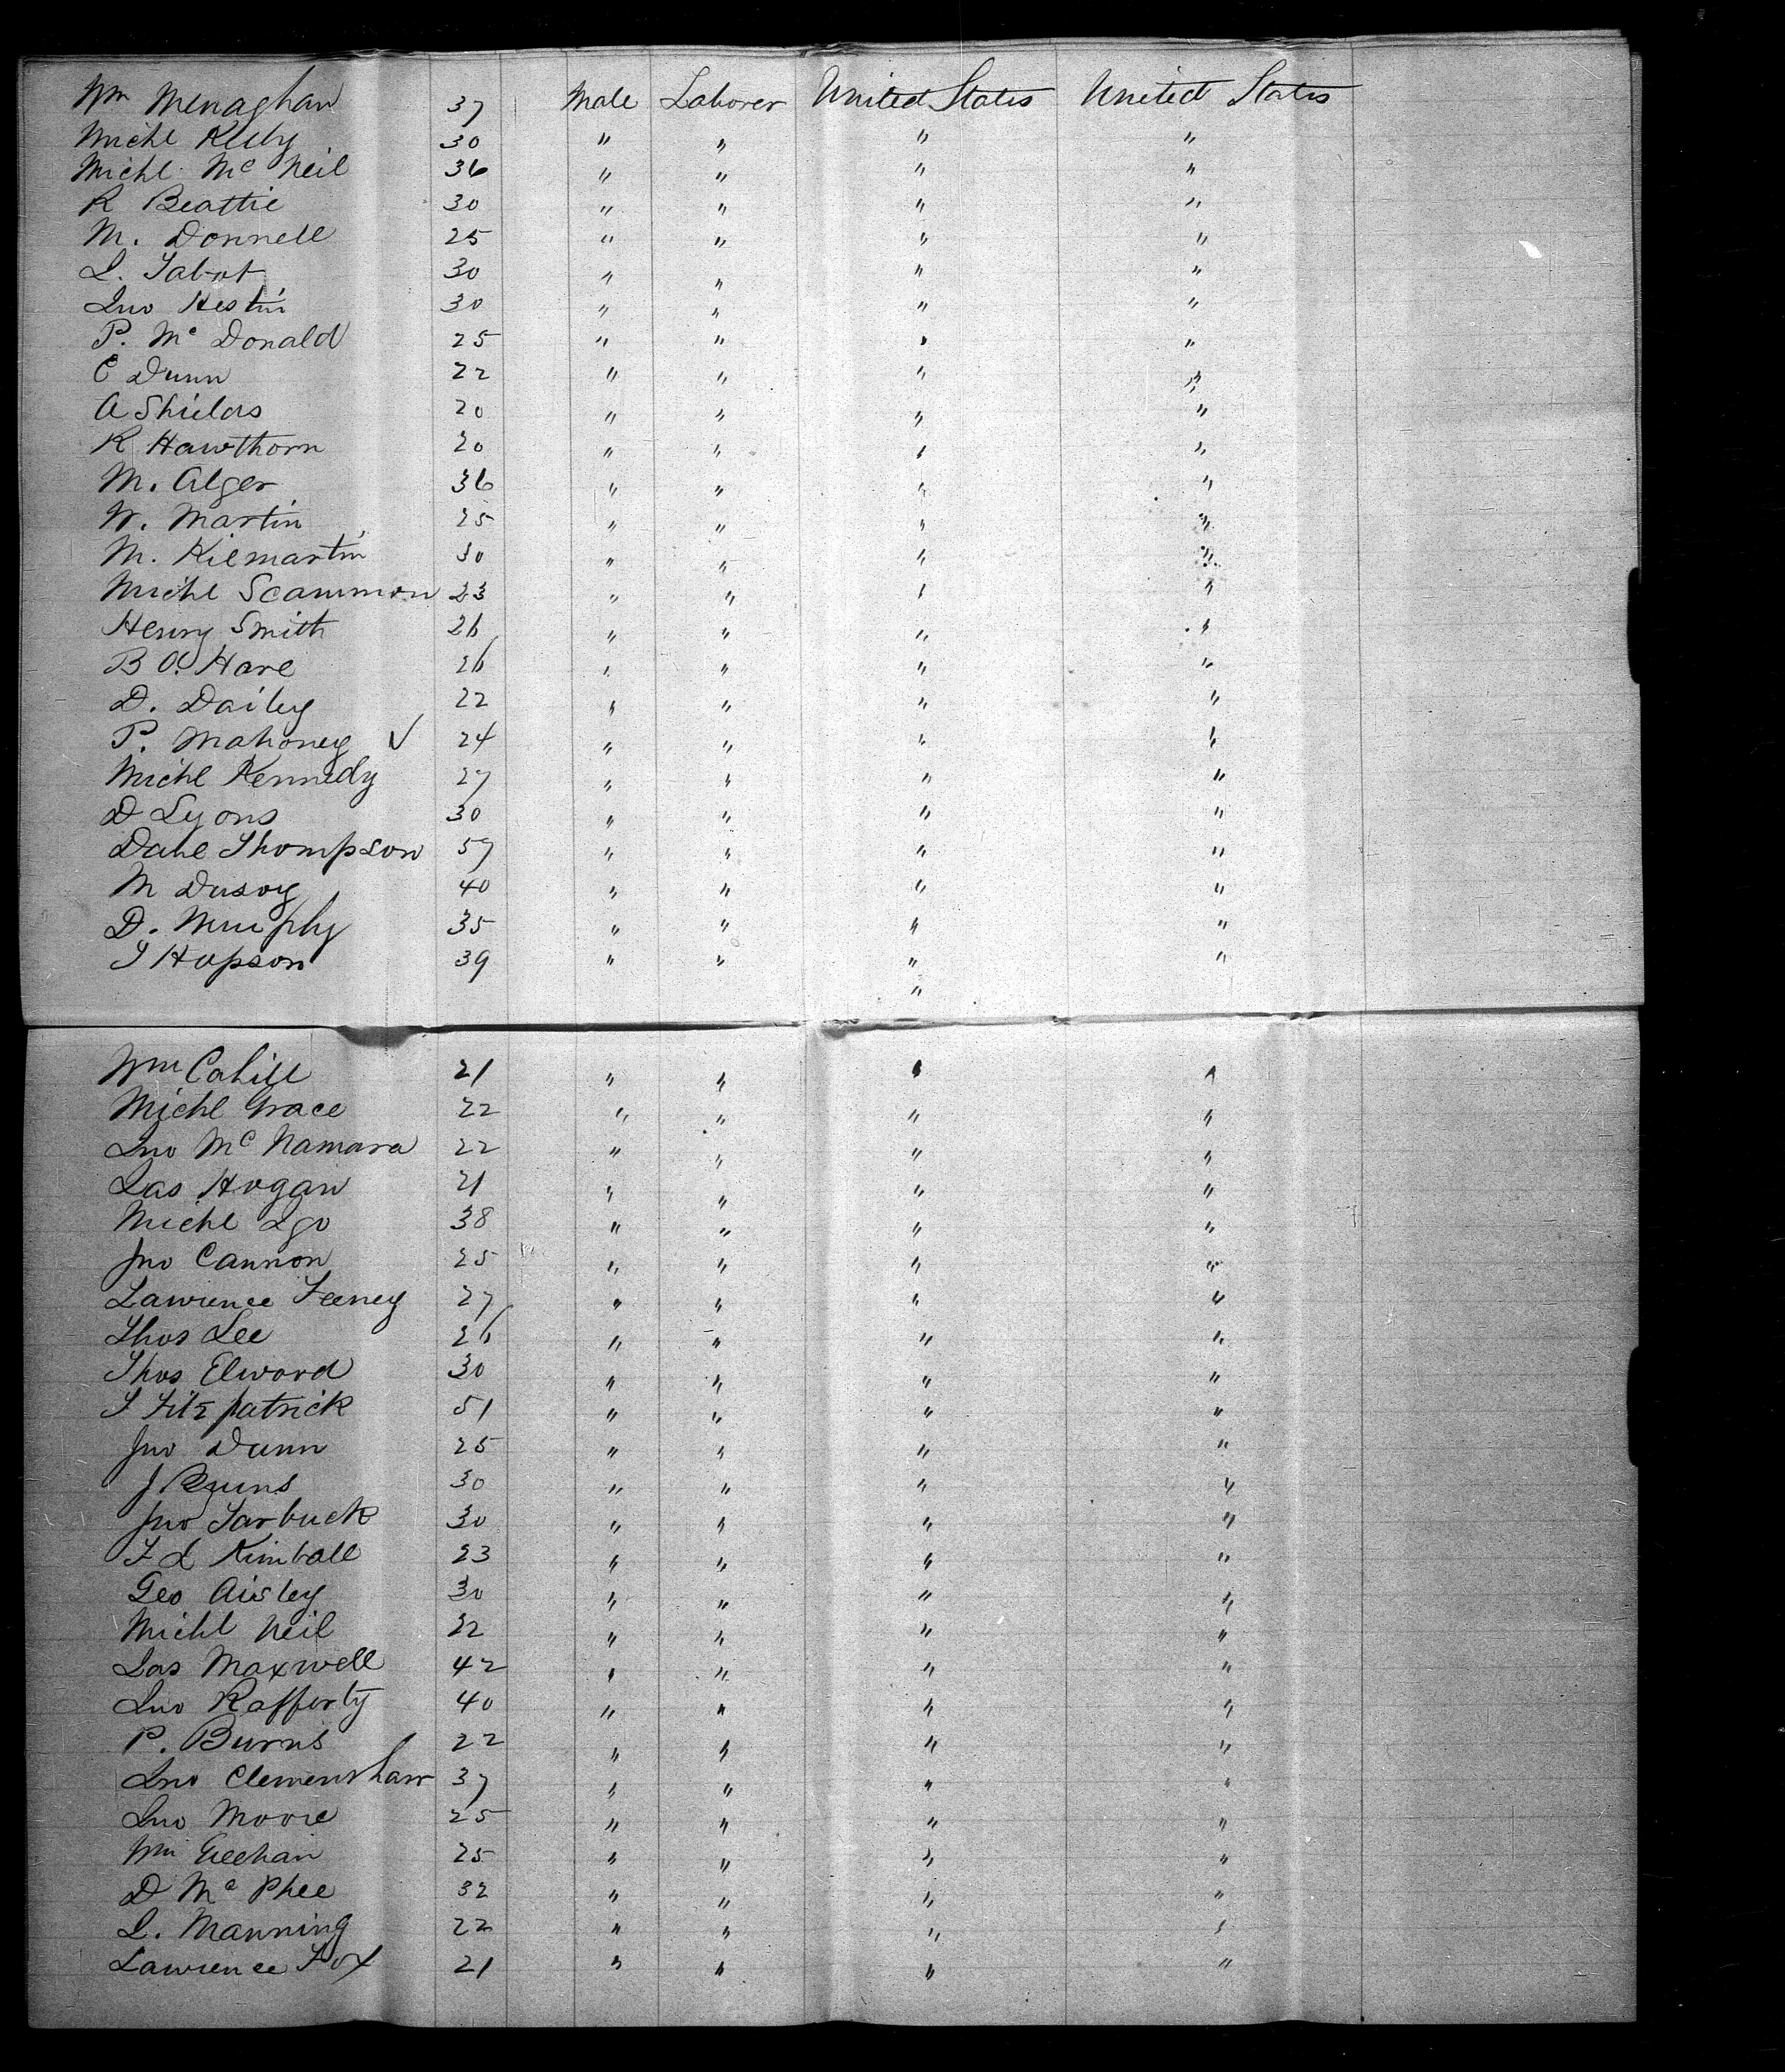 Wm Menaghan 37 Male Laborer United States United States
Michl Kelly 30 " " " "
Michl Mc Neil 36 " " " "
R Beattie 30 " " " "
M. Donnell 25 " " " "
L. Tabot 30 " " " "
Jno Hestin 30 " " " "
P. Mc Donald 25 " " " "
C Dunn 22 " " " "
A Shields 20 " " " "
R Hawthorn 20 " " " "
M. Alger 36 " " " "
W. Martin 25 " " " "
M. Kilmartin 30 " " " "
Michl Scammon 23 " " " "
Henry Smith 26 " " " "
B O. Hare 26 " " " "
D. Dailey 22 " " " "
P. Mahoney √ 24 " " " "
Michl Kennedy 27 " " " "
D Lyons 30 " " " "
Danl Thompson 57 " " " "
M 40 " " " "
D. Murphy 35 " " " "
T Hopson 39 " " " "
"
Wm Cahill 21 " " " "
Michl Grace 22 " " " "
Jno Mc Namara 22 " " " "
Jas Hogan 21 " " " "
Michl 38 " " " "
Jno Cannon 25 " " " "
Lawrence Feeney 27 " " " "
Thos Lee 26 " " " "
Thos Elword 30 " " " "
T Fitzpatrick 51 " " " "
Jno Dunn 25 " " " "
J 30 " " " "
Jno Tarbuck 30 " " " "
F L Kimball 23 " " " "
Geo Aisley 30 " " " "
Michl Neil 22 " " " "
Jas Maxwell 42 " " " "
Jno Rafferty 40 " " " "
P. Burns 22 " " " "
Jno Clemenshaw 37 " " " "
Jno Moore 25 " " " "
Wm Geehan 25 " " " "
D Mc Phee 32 " " " "
L. Manning 22 " " " "
Lawrence Fox 21 " " " "